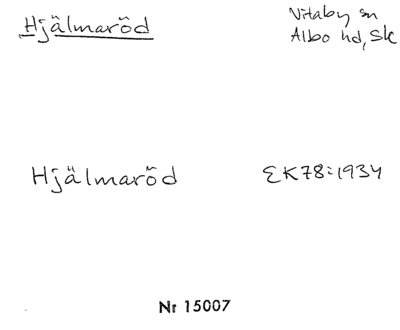 Hjälmaröd
Vitaby sn
Albo hd, Sk
Hjälmaröd
EK78:1934
Nr 15007